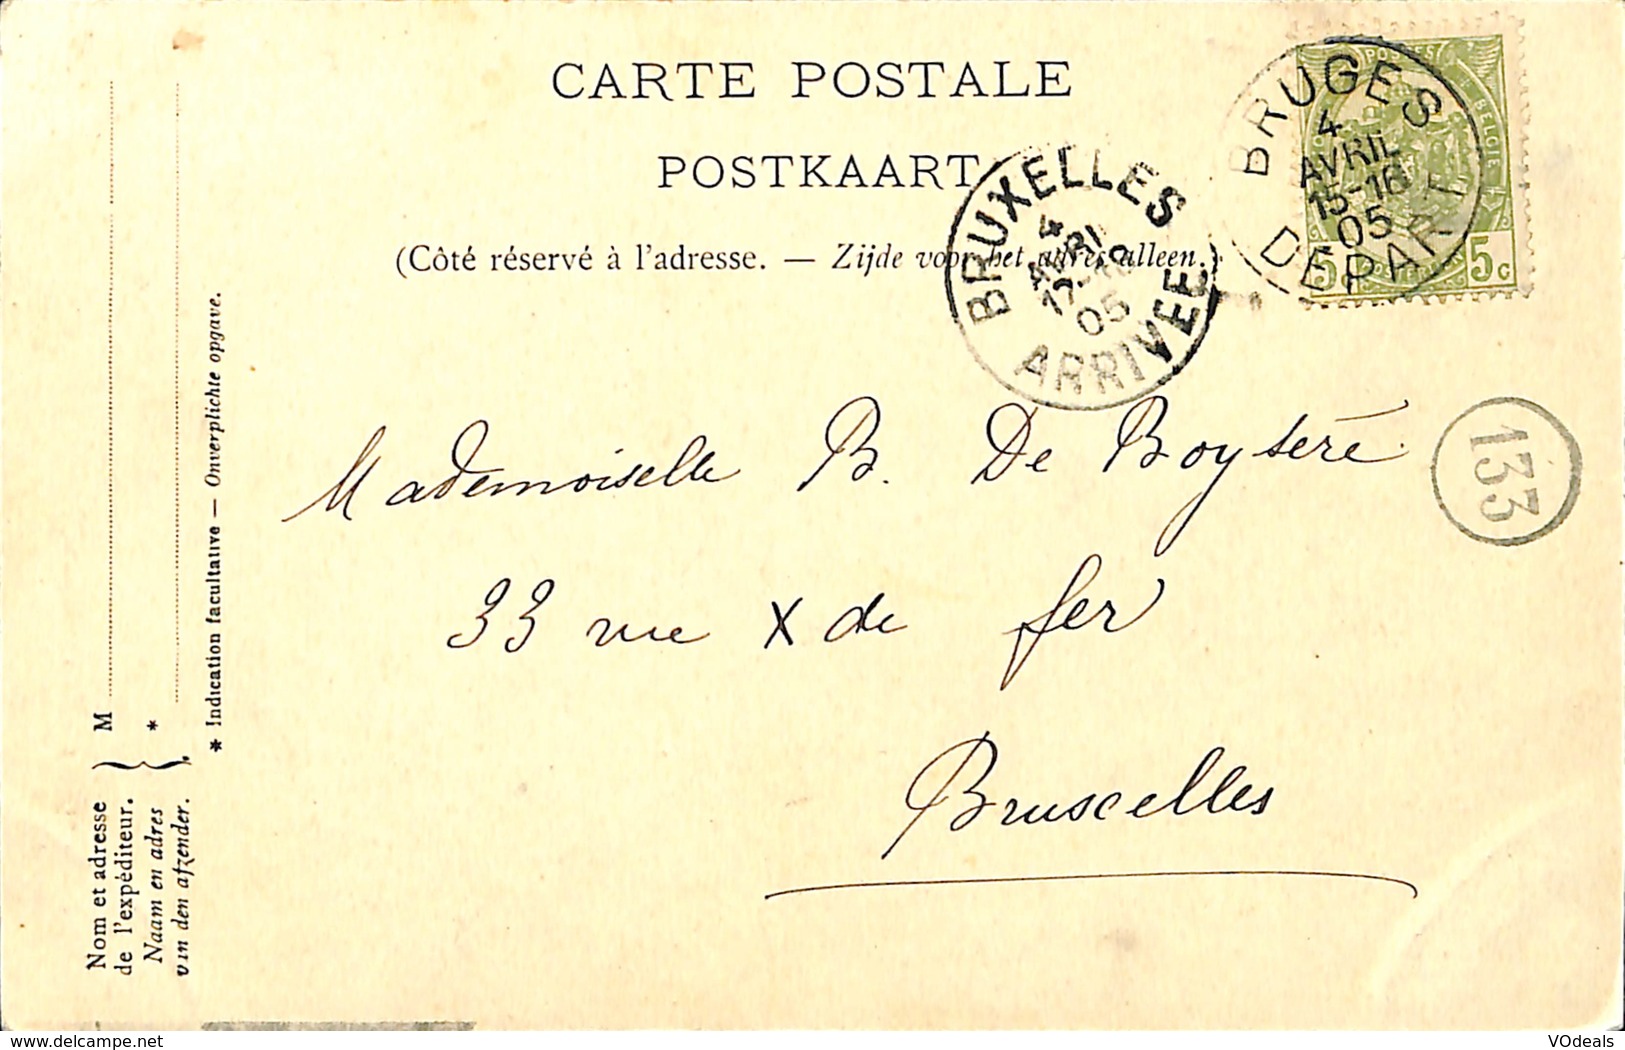 CARTE POSTALE
POSTKAART
(Côté réservé à l'adresse. — Zijde voor het adres alleen.)
BRUXELLES
4
AVRI
05
ARRIVEE
BRUGES
4
AVRIL
15-16
05
DEPART
POSTES
BELGIE
5c 5c
133
Mademoiselle B. De Boyseré
33 rue X de fer
Bruxelles
Nom et adresse
de l'expéditeur.
Naam en adres
van den afzender.
M
*
* Indication facultative — Onverplichte opgave.
delcampe.net
VOdeals